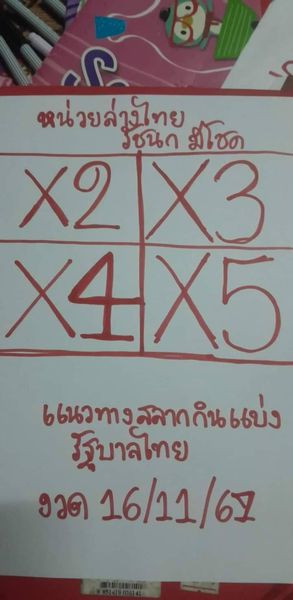 หน่วยล่างไทย
รัชนก มีโชค
X2 X3
X4 X5
แนวทางสลากกินแบ่ง
รัฐบาลไทย
งวด 16/11/61